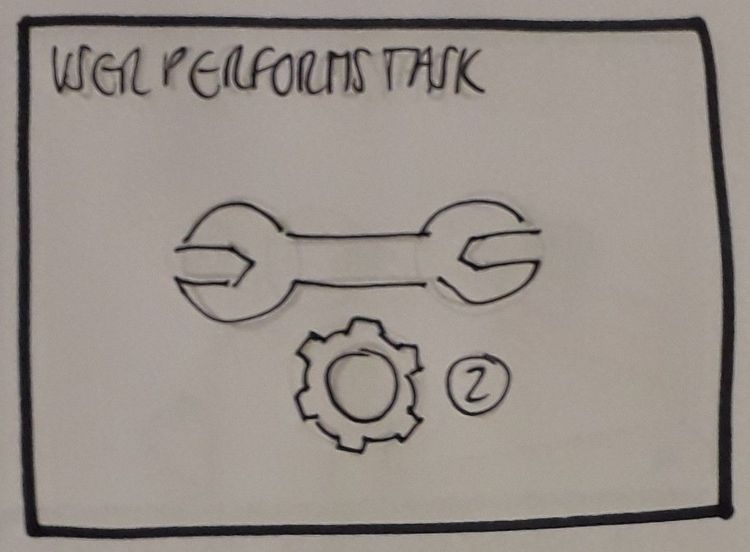 USER PERFORMS TASK
2